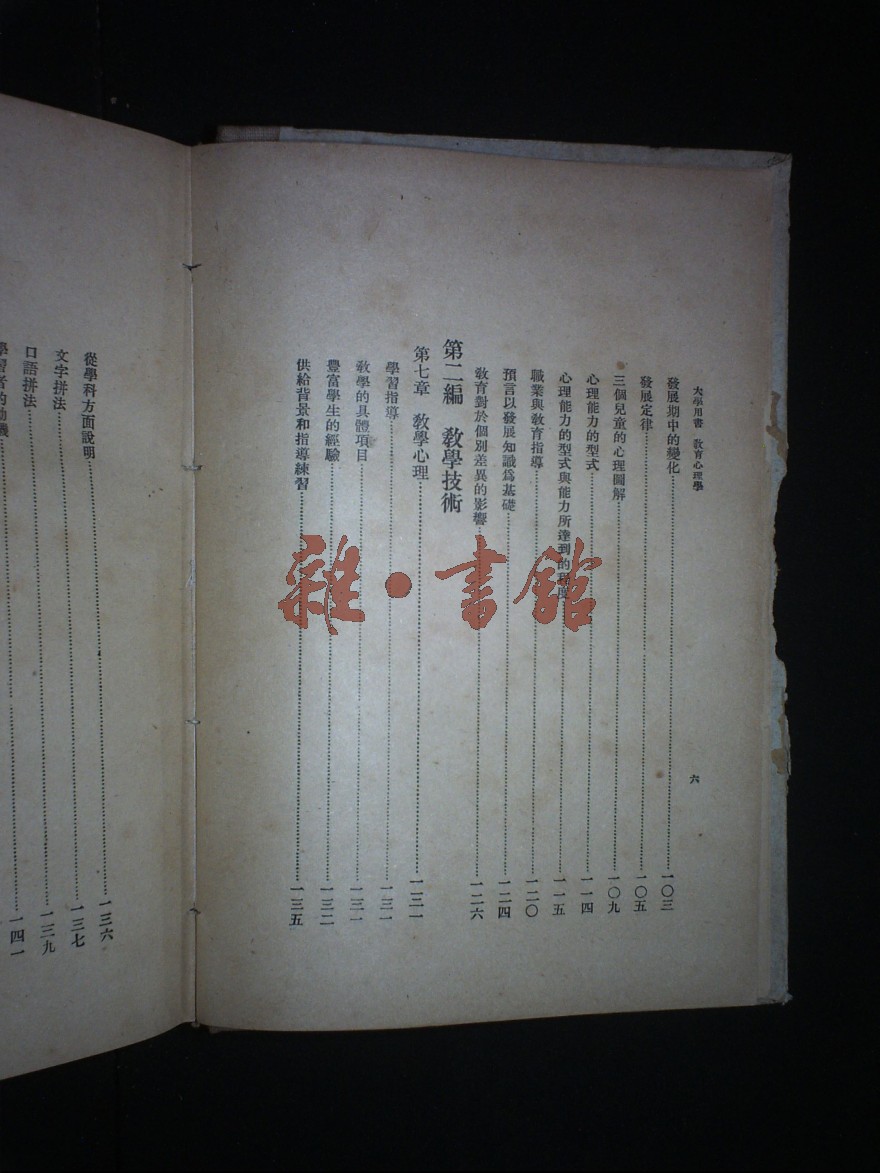 大學用書　敎育心理學
六
發展期中的變化……一〇三
發展定律……一〇五
三個兒童的心理圖解……一〇九
心理能力的型式……一一四
心理能力的型式與能力所達到的程度……一一五
職業與敎育指導……一二〇
預言以發展知識爲基礎……一二四
敎育對於個別差異的影響……一二六
第二編　敎學技術
第七章　敎學心理……一三一
學習指導……一三一
敎學的具體項目……一三一
豐富學生的經驗……一三二
供給背景和指導練習……一三五
從學科方面說明……一三六
文字拼法……一三七
口語拼法……一三九
學習者的動機……一四一
雜·書館